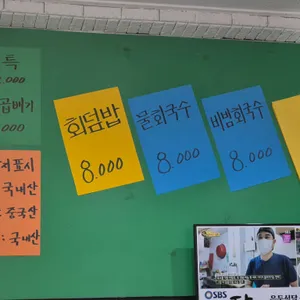 특
곱배기
회덮밥
8.000
물회국수
8.000
비빔회국수
8.000
표시
국내산
중국산
: 국내산
SBS